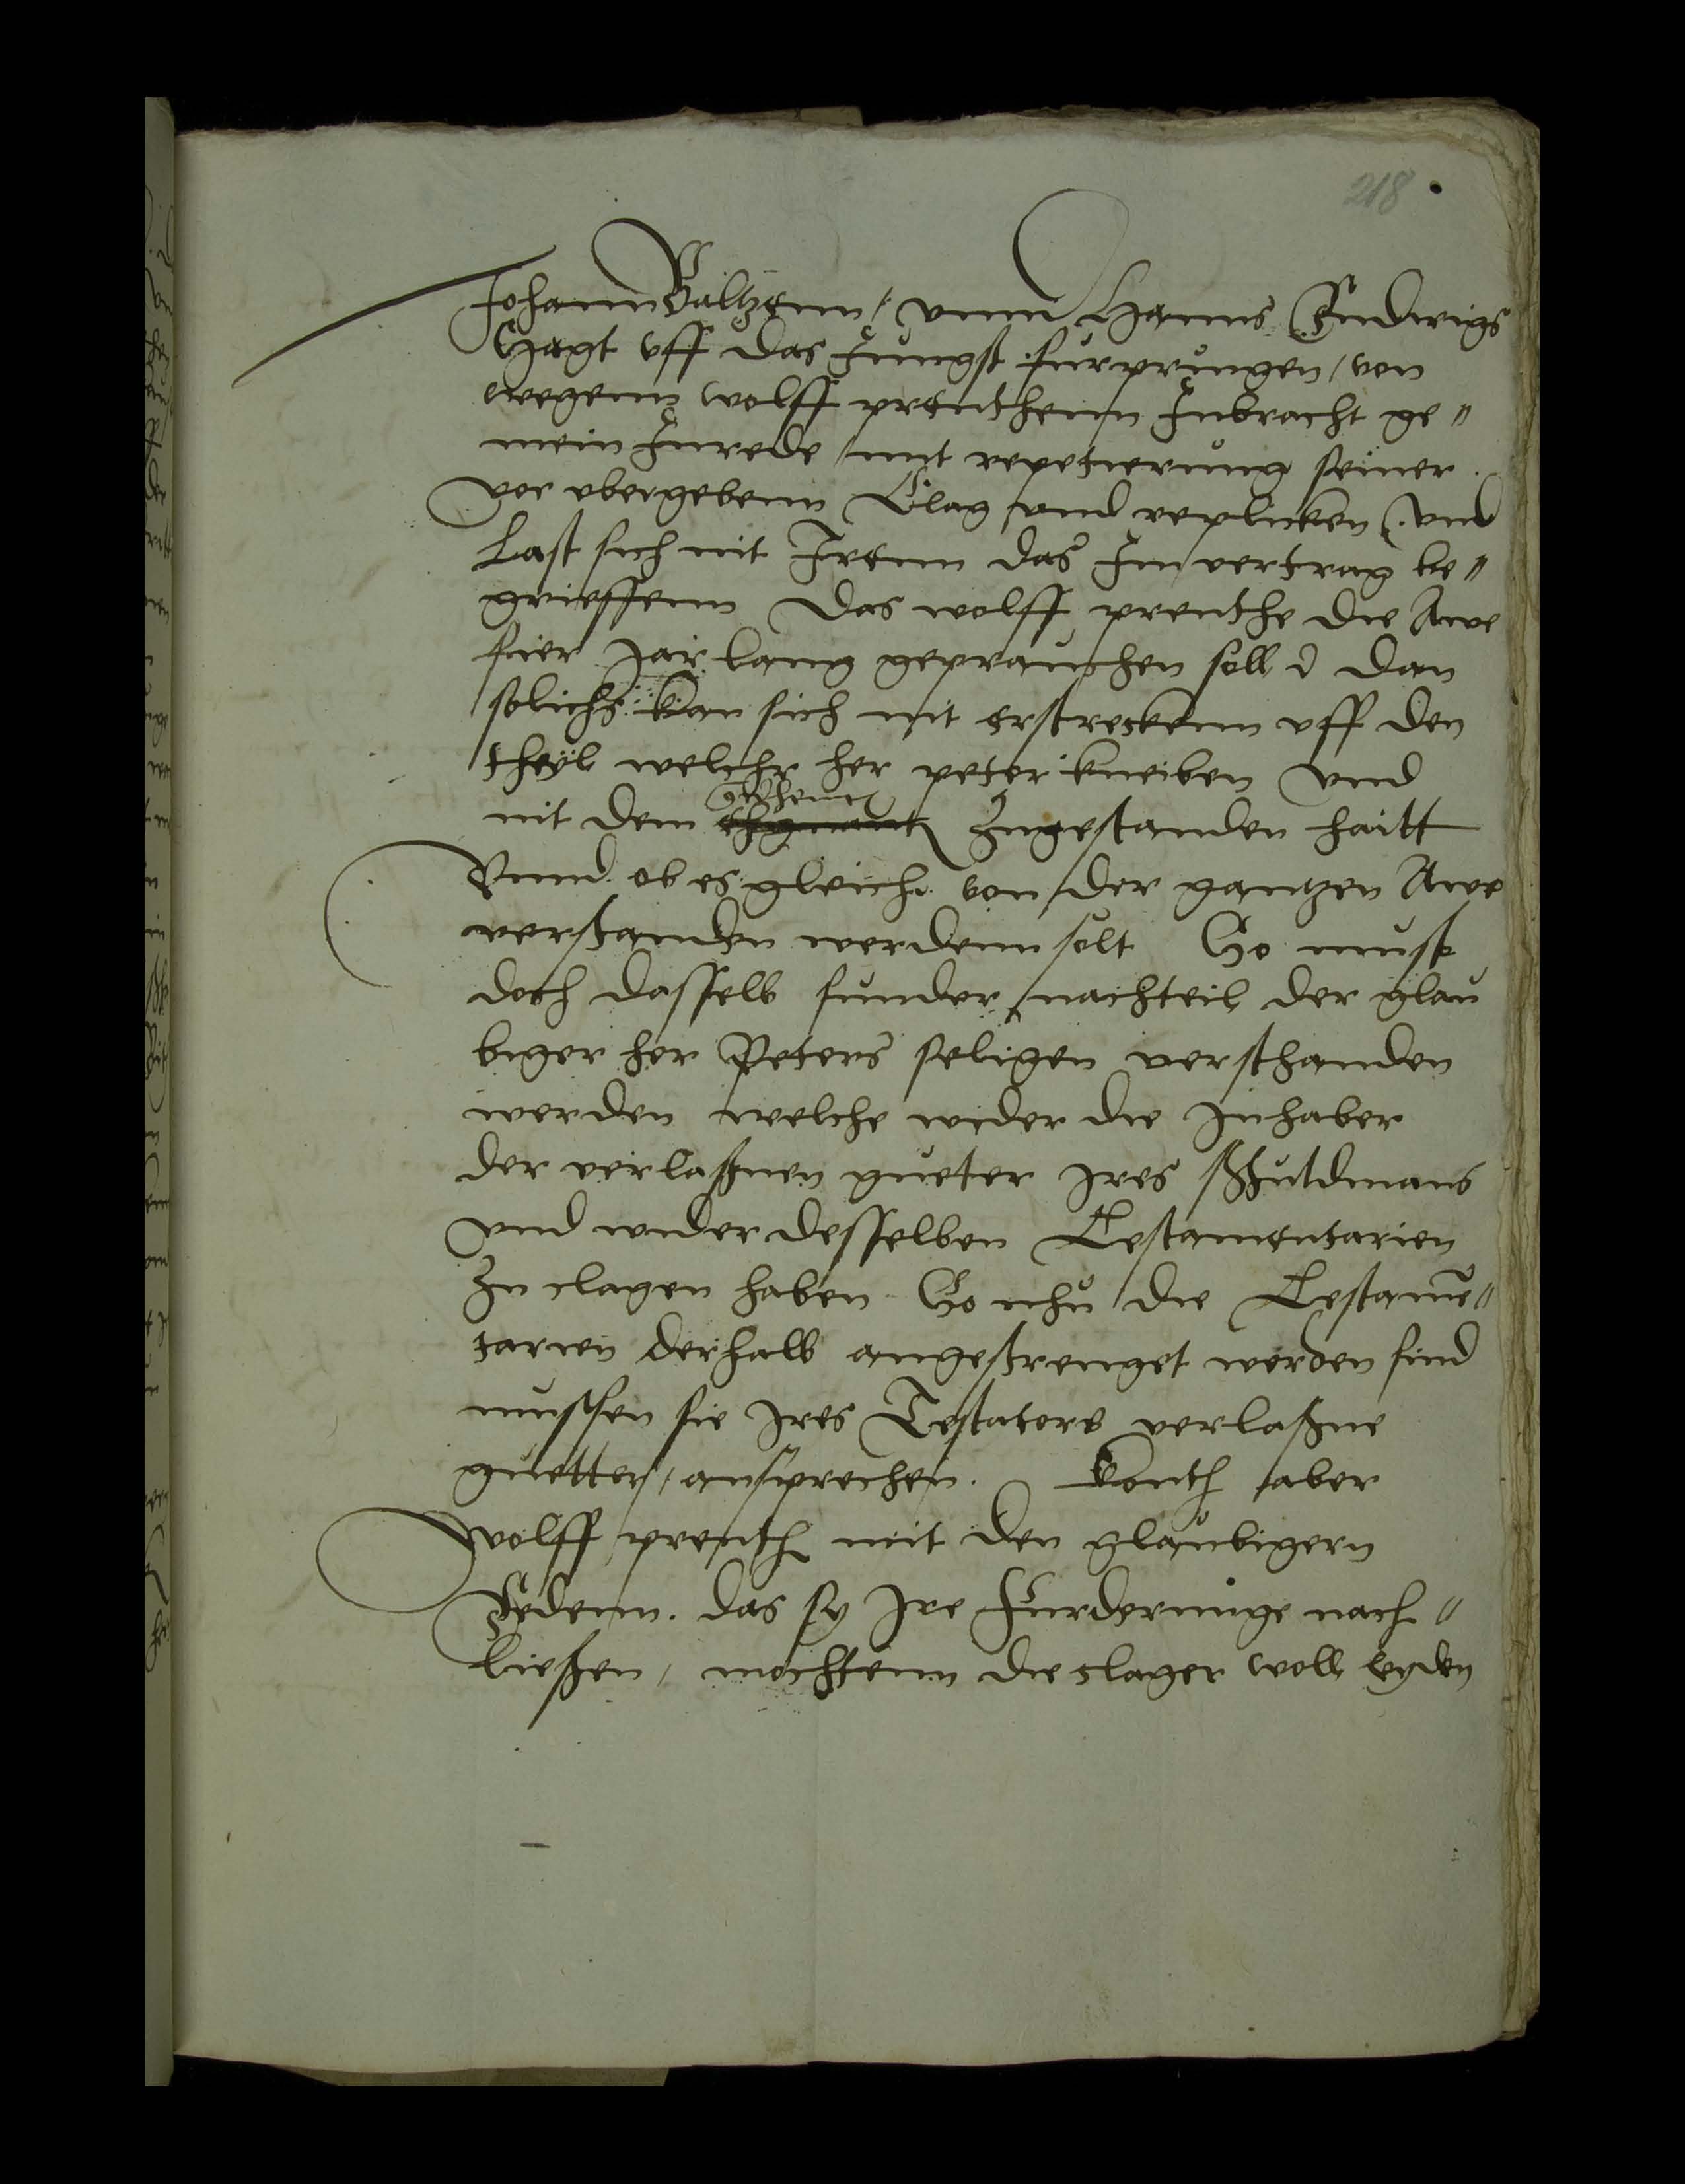 218
Johann Baltzenn, vnnd Hanns Ludwigs
Sagt vff das Jungst furpringen, von
wegenn wolff prentzhenn Inbracht ge„
mein Inrede, mit repetierung seiner
vor vbergebenn Clag, vnd replicken, vnd
Last sich nit Irenn das Im vertrag be„
grieffenn Das wolff prentzhe die Awe
fier Jar lanng geprauchen soll, dan
solichs kan sich nit erstreckenn vff den
theyl welchr her peter kneiben vnd
nit dem Zugestanden haitt
Vnnd ob es gleich von der gantzen Awe
verstanden werdenn solt So must
doch dasselb sunder nachteil der glau
biger her Peters seligen versthanden
werden welche wider die Inhaber
der verlaßnen gueter Ires schuldmans
vnd wider desselben Testamentarien
Zu clagen haben So nhu die Testamē„
tarien derhalb angestrenget worden sind
mussen sie Ires Testators verlaßne
guetter, ansprechen. Konth aber
wolff prentzh mit den glaubigern
Redenn. das sy Ire Furderunge nach„
ließen, mochtenn die clager woll leyden